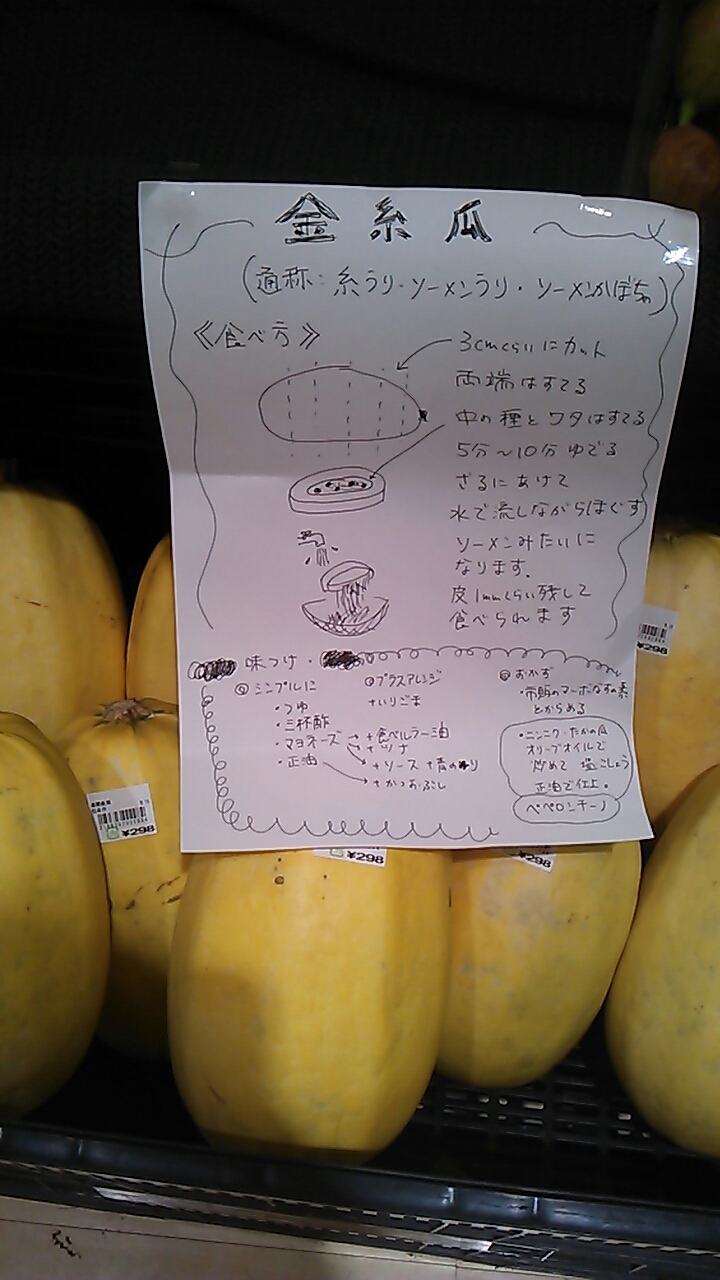 金糸瓜
(通称:糸うり・ソーメンうり・ソーメンかぼちゃ)
《食べ方》
3cmくらいにカット
両端はすてる
中の種とワタはすてる
5分~10分ゆでる
ざるにあけて
水で流しながらほぐす
ソーメンみたいに
なります。
皮1mmくらい残して
食べられます
味つけ・
シンプルに
・つゆ
・三杯酢
・マヨネーズ
・正油
プラスアレンジ
+いりごま
+食べルラー油
+ツナ
+ソース+青のり
+かつおぶし
おかず
・市販のマーボなすの素
とからめる
・ニンニク・たかの爪
オリーブオイルで
炒めて 塩こしょう
正油で仕上。
ペペロンチーノ
¥298
¥298
¥298
¥298